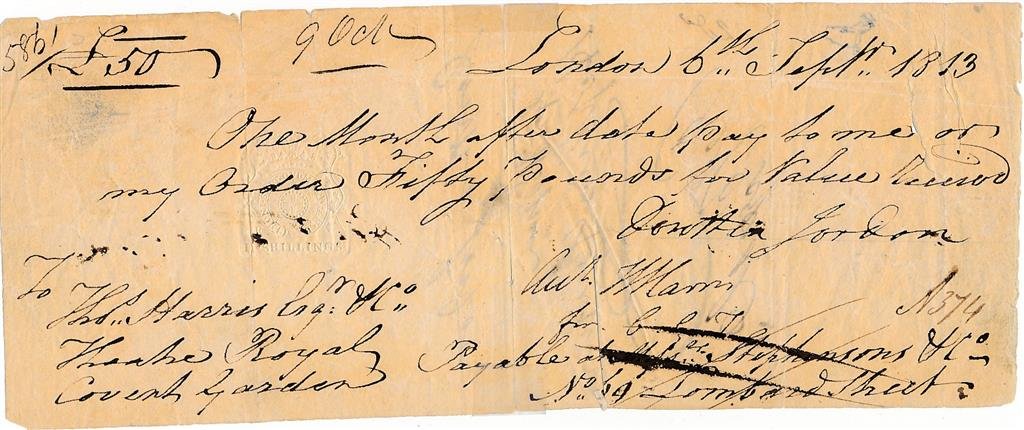 5861
£50
9 Oct
London 6th Septr. 1813
One Month after date pay to me or
my Order Fifty Pounds for Value Receivd
Dorothea Jordan
SHILLINGS
To
Thos. Harris Esqr. & Co
Theatre Royal
Covent Garden
N374
for C. G. T
Payable at Stephensons & Co
No. 69 Lombard Street